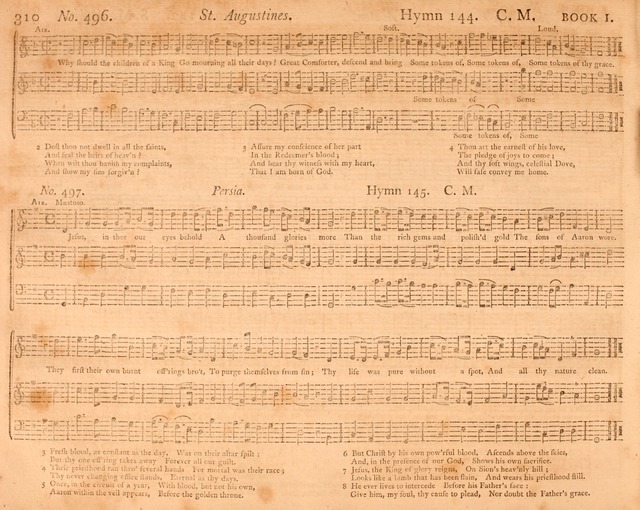 310 No. 496. St. Augustines. Hymn 144. C. M. BOOK I.
Air. Soft. Loud.
Why should the children of a King Go mourning all their days? Great Comforter, descend and bring Some tokens of, Some tokens of, Some tokens of thy grace.
Some tokens of Some
Some tokens of, Some
2 Dost thou not dwell in all the saints,
And seal the heirs of heav'n?
When wilt thou banish my complaints,
And show my sins forgiv'n?
3 Assure my conscience of her part
In the Redeemer's blood;
And bear thy witness with my heart,
That I am born of God.
4 Thou art the earnest of his love,
The pledge of joys to come;
And thy soft wings, celestial Dove,
Will safe convey me home.
No. 497. Persia. Hymn 145. C. M.
Air.
Jesus, in thee our eyes behold A thousand glories more Than the rich gems and polish'd gold The sons of Aaron wore.
They first their own burnt off'rings bro't, To purge themselves from sin; Thy life was pure without a spot, And all thy nature clean.
3 Fresh blood, as constant as the day, Was on their altar spilt;
But thy one off'ring takes away Forever all our guilt.
4 Their priesthood ran thro' several hands For mortal was their race;
Thy never changing office stands, Eternal as thy days.
5 Once, in the circuit of a year, With blood, but not his own,
Aaron within the veil appears, Before the golden throne.
6 But Christ by his own pow'rful blood, Ascends above the skies,
And, in the presence of our God, Shows his own sacrifice.
7 Jesus, the King of glory reigns, On Sion's heav'nly hill;
Looks like a lamb that has been slain, And wears his priesthood still.
8 He ever lives to intercede Before his Father's face:
Give him, my soul, thy cause to plead, Nor doubt the Father's grace.